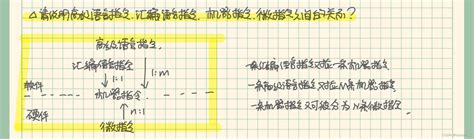 △ 请说明高级语言指令、汇编语言指令、机器指令、微指令之间的关系？
高级语言指令
汇编语言指令
1:1
1:m
软件
机器指令
硬件
n:1
微指令
一条汇编语言指令对应一条机器指令
一条高级语言指令对应M条机器指令
一条机器指令又可被分为N条微指令